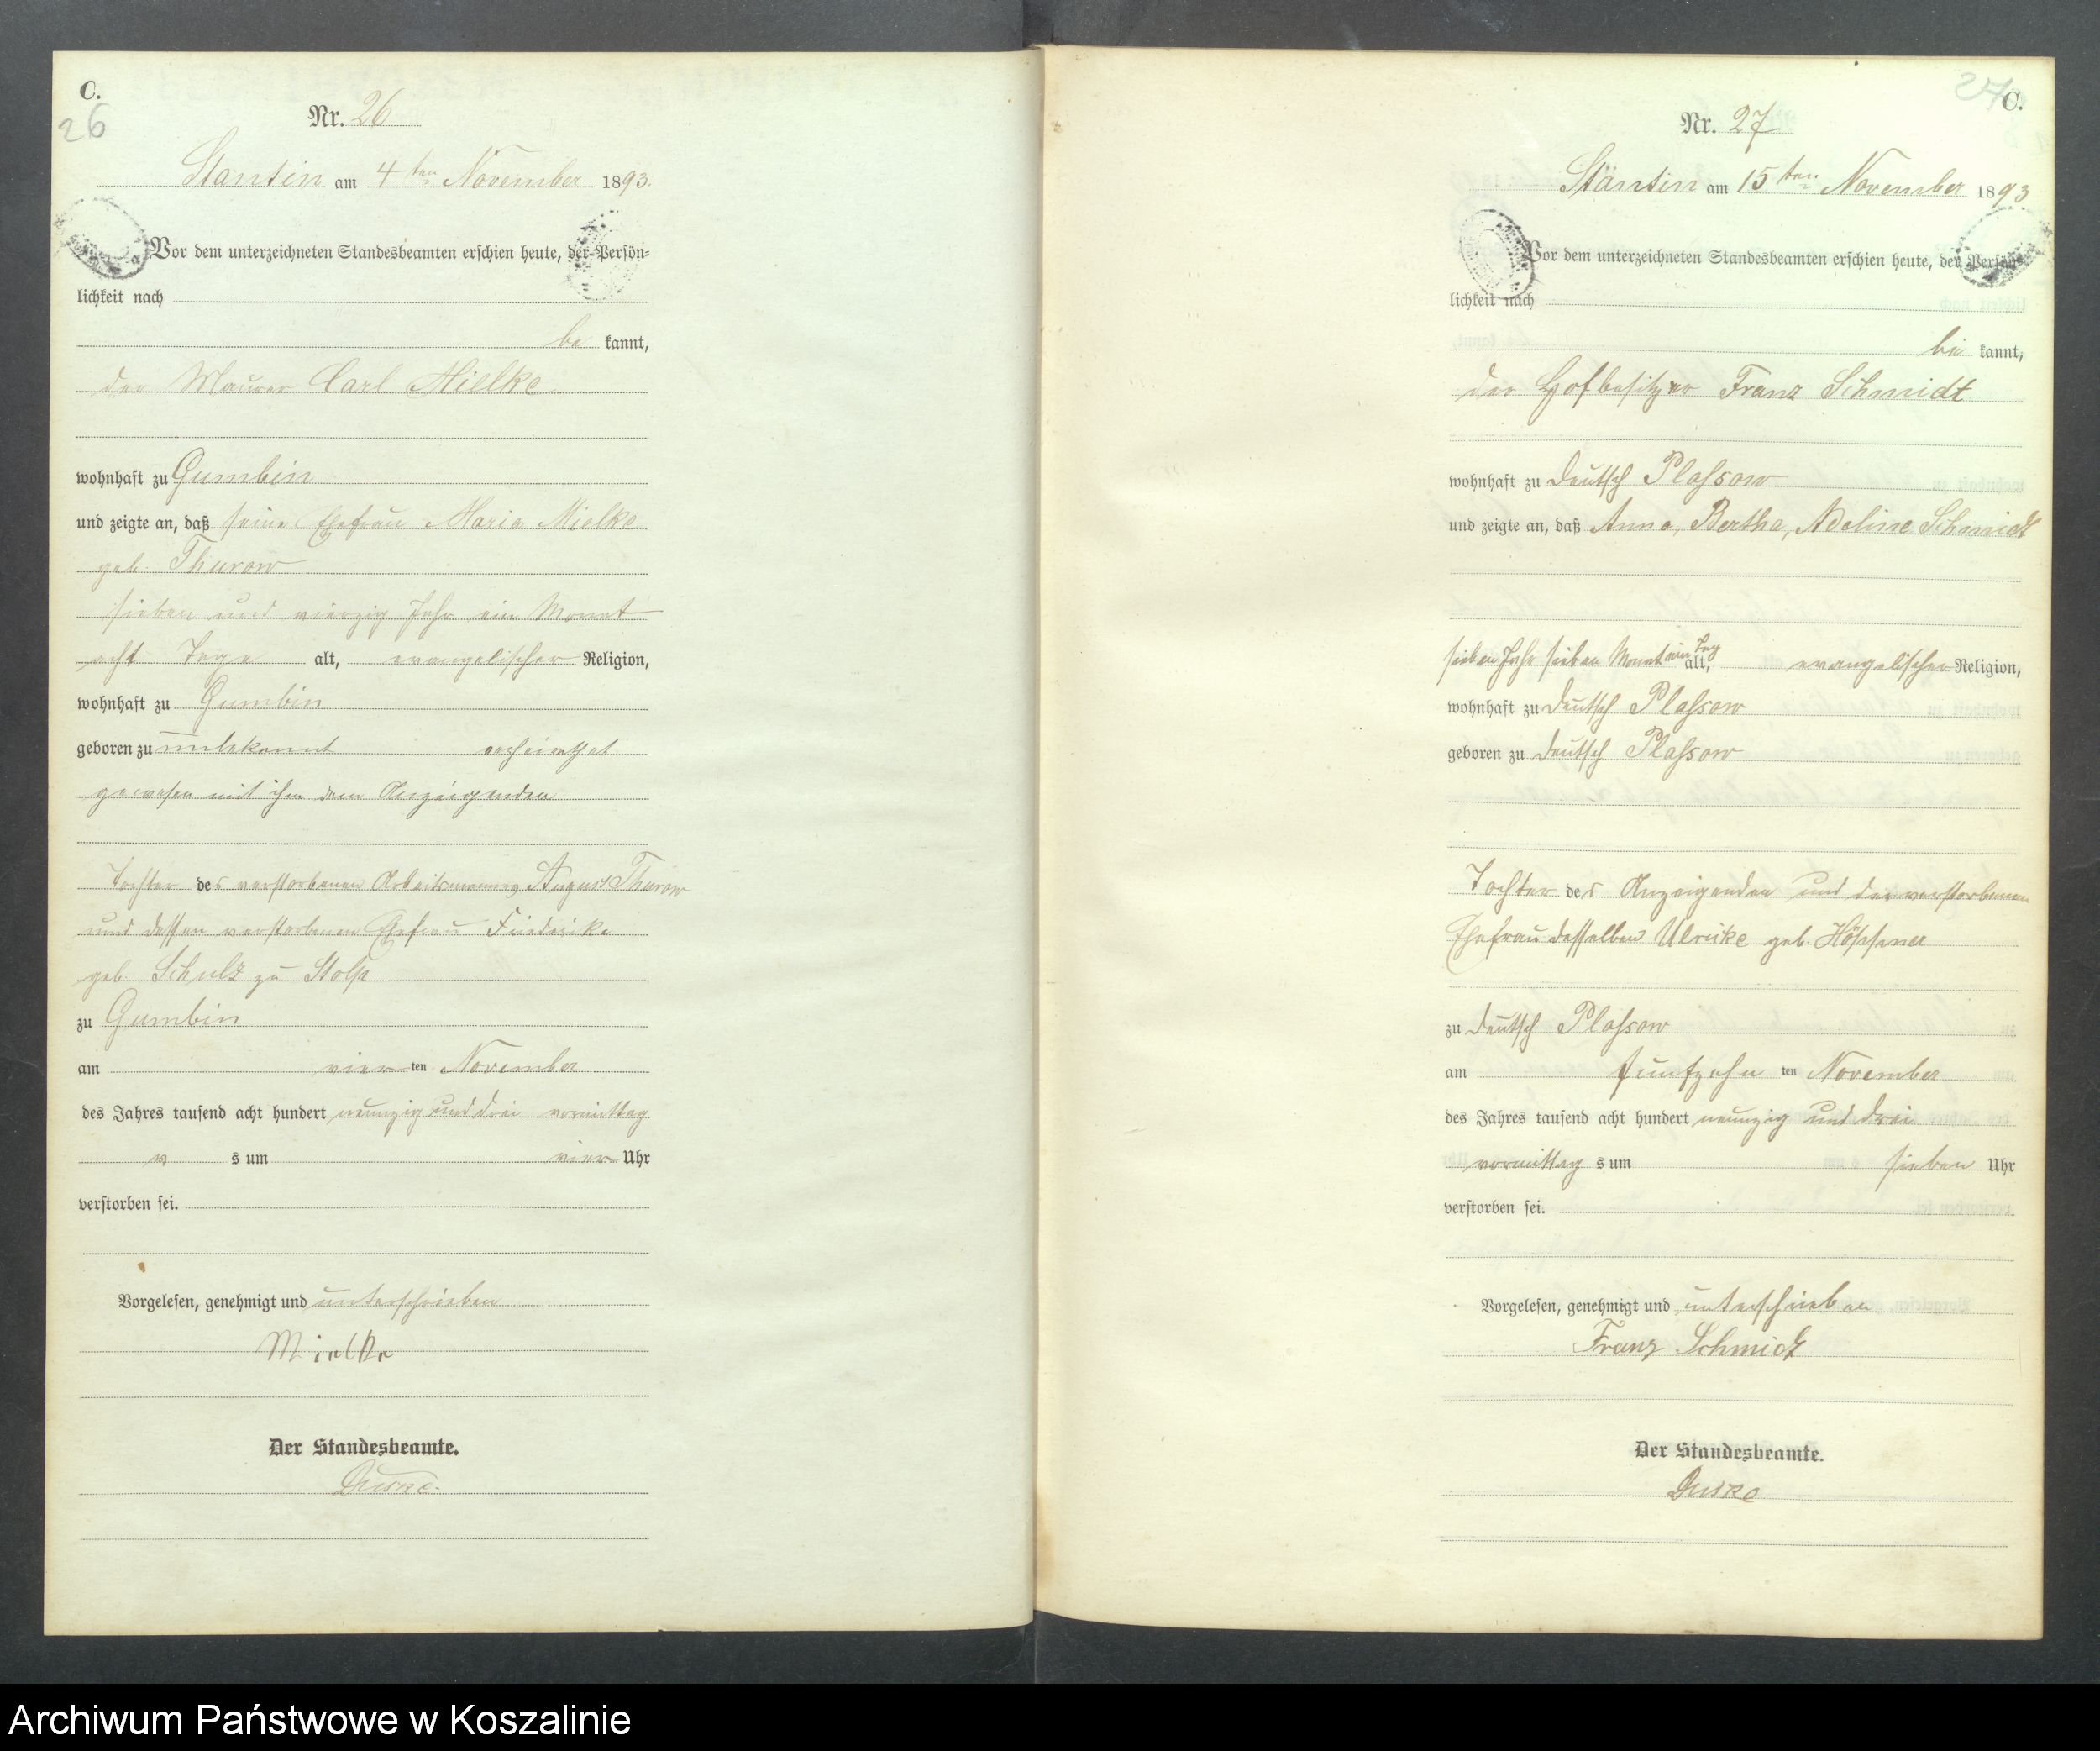 C.
26
Nr. 26
Stantin am 4ten November 1893.
Vor dem unterzeichneten Standesbeamten erschien heute, der Persön-
lichkeit nach
be kannt,
der Maurer Carl Mielke
wohnhaft zu Gumbin
und zeigte an, daß seine Ehefrau Maria Mielke
geb. Thurow
sieben und vierzig Jahr ein Monat
acht Tage alt, evangelischer Religion,
wohnhaft zu Gumbin
geboren zu unbekannt verheirathet
gewesen mit ihm dem Anzeigenden
Tochter des verstorbenen Arbeitsmannes August Thurow
und dessen verstorbenen Ehefrau Friederike
geb. Schulz zu Stolp
zu Gumbin
am vier ten November
des Jahres tausend acht hundert neunzig und drei vormittag
s um vier Uhr
verstorben sei.
Vorgelesen, genehmigt und unterschrieben
Mielke
Der Standesbeamte.
27
C.
Nr. 27
Stäntin am 15ten November 1893
Vor dem unterzeichneten Standesbeamten erschien heute, der Persön-
lichkeit nach
be kannt,
der Hofbesitzer Franz Schmidt
wohnhaft zu Deutsch Plassow
und zeigte an, daß Anna, Bertha, Adeline Schmidt
sieben Jahr sieben Monat ein Tag alt, evangelischer Religion,
wohnhaft zu Deutsch Plassow
geboren zu Deutsch Plassow
Tochter des Anzeigenden und der verstorbenen
Ehefrau desselben Ulrike geb. Höppner
zu Deutsch Plassow
am funfzehn ten November
des Jahres tausend acht hundert neunzig und drei
vormittag s um sieben Uhr
verstorben sei.
Vorgelesen, genehmigt und unterschrieben
Franz Schmidt
Der Standesbeamte.
Archiwum Państwowe w Koszalinie